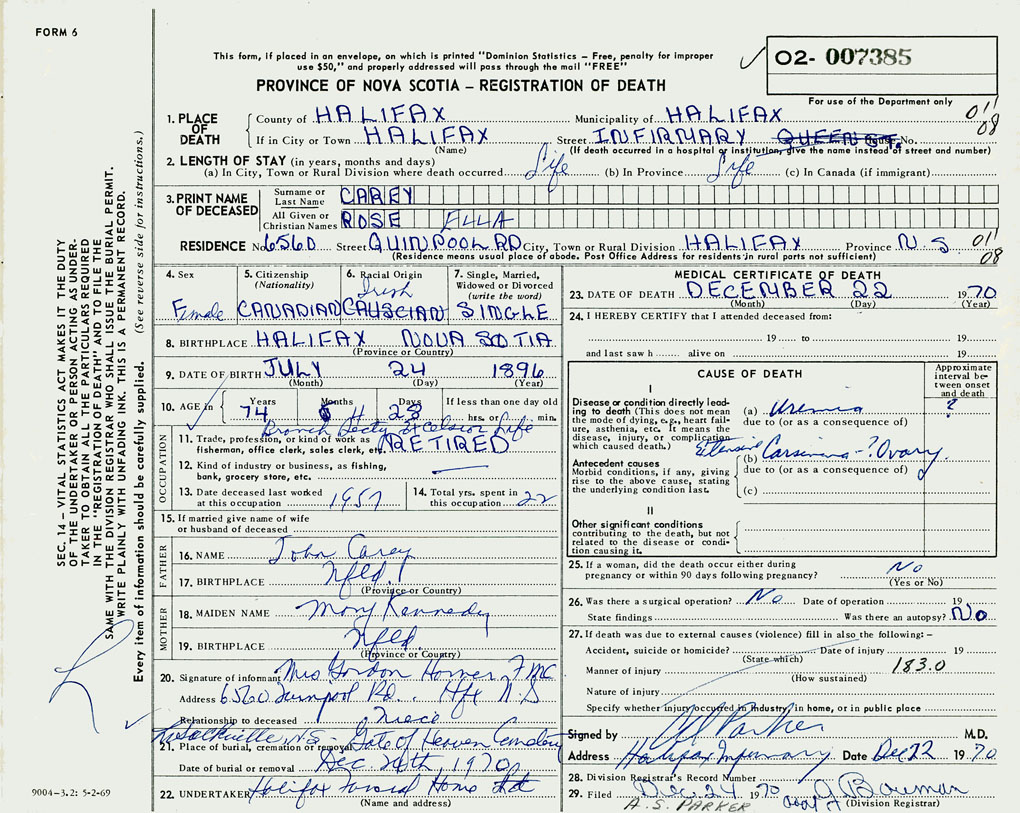 FORM 6
This form, if placed in an envelope, on which is printed "Dominion Statistics – Free, penalty for improper
use $50," and properly addressed will pass through the mail "FREE"
O2- 007385
PROVINCE OF NOVA SCOTIA – REGISTRATION OF DEATH
For use of the Department only
1. PLACE OF DEATH
County of HALIFAX Municipality of HALIFAX 011
If in City or Town HALIFAX Street INFIRMARY No. 08
(Name) (If death occurred in a hospital or institution, give the name instead of street and number)
2. LENGTH OF STAY (in years, months and days)
(a) In City, Town or Rural Division where death occurred Life (b) In Province Life (c) In Canada (if immigrant)
3. PRINT NAME OF DECEASED
Surname or Last Name CAREY
All Given or Christian Names ROSE ELLA
RESIDENCE No 6560 Street QUINPOOL RD City, Town or Rural Division HALIFAX Province N.S 011
(Residence means usual place of abode. Post Office Address for residents in rural parts not sufficient) 08
4. Sex Female
5. Citizenship (Nationality) CANADIAN
6. Racial Origin Irish CAUSCIAN
7. Single, Married, Widowed or Divorced (write the word) SINGLE
8. BIRTHPLACE HALIFAX NOVA SOTIA
(Province or Country)
9. DATE OF BIRTH JULY 24 1896
(Month) (Day) (Year)
10. AGE in Years 74 Months 4 Days 28 If less than one day old hrs. or min.
OCCUPATION
Branch Secty Excelsior Life
11. Trade, profession, or kind of work as fisherman, office clerk, sales clerk, etc. RETIRED
12. Kind of industry or business, as fishing, bank, grocery store, etc.
13. Date deceased last worked at this occupation 1957
14. Total yrs. spent in this occupation 22
15. If married give name of wife or husband of deceased
FATHER
16. NAME John Carey
17. BIRTHPLACE Nfld.
(Province or Country)
MOTHER
18. MAIDEN NAME Mary Kennedy
19. BIRTHPLACE Nfld.
(Province or Country)
20. Signature of informant Mrs Gordon
Address 6560 Quinpool Rd. Hfx N.S
Relationship to deceased Niece
Sackville, N.S.
21. Place of burial, cremation or removal Gate of Heaven Cemetery
Date of burial or removal Dec. 24th, 1970
22. UNDERTAKER Halifax Funeral Home Ltd
(Name and address)
MEDICAL CERTIFICATE OF DEATH
23. DATE OF DEATH DECEMBER 22 1970
(Month) (Day) (Year)
24. I HEREBY CERTIFY that I attended deceased from:
19 to 19
and last saw h alive on 19
CAUSE OF DEATH
Approximate interval between onset and death
I
Disease or condition directly leading to death (This does not mean the mode of dying, e.g., heart failure, asthenia, etc. It means the disease, injury, or complication which caused death.)
(a) Uremia ?
due to (or as a consequence of)
Extensive Carsinoma - ? Ovary
(b)
Antecedent causes
Morbid conditions, if any, giving rise to the above cause, stating the underlying condition last.
due to (or as a consequence of)
(c)
II
Other significant conditions contributing to the death, but not related to the disease or condition causing it.
25. If a woman, did the death occur either during pregnancy or within 90 days following pregnancy? No
(Yes or No)
26. Was there a surgical operation? No Date of operation 19
State findings Was there an autopsy? No
27. If death was due to external causes (violence) fill in also the following: –
Accident, suicide or homicide? Date of injury 19
(State which)
Manner of injury 183.0
(How sustained)
Nature of injury
Specify whether injury occurred in industry, in home, or in public place
Signed by Parker M.D.
Address Halifax Infirmary Date Dec 22 1970
28. Division Registrar's Record Number
29. Filed Dec. 24 1970 Bowman
A.S. PARKER (Division Registrar)
SEC. 14 – VITAL STATISTICS ACT MAKES IT THE DUTY
OF THE UNDERTAKER OR PERSON ACTING AS UNDER-
TAKER TO OBTAIN ALL THE PARTICULARS REQUIRED
IN THE "REGISTRATION OF DEATH" AND TO FILE THE
SAME WITH THE DIVISION REGISTRAR WHO SHALL ISSUE THE BURIAL PERMIT.
WRITE PLAINLY WITH UNFADING INK. THIS IS A PERMANENT RECORD.
Every item of information should be carefully supplied. (See reverse side for instructions.)
9004–3.2: 5-2-69